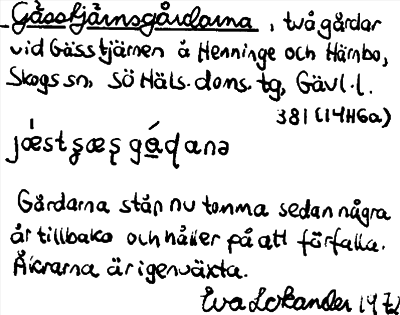 Gåsstjärnsgårdarna, två gårdar
vid Gåsstjärnen å Henninge och Härnbo,
Skogs sn, Sö Häls. doms. tg, Gävl. l.
381 (14H6a)
Gårdarna står nu tomma sedan några
år tillbaka och håller på att förfalla.
Åkrarna är igenväxta.
Eva Lokander 1972